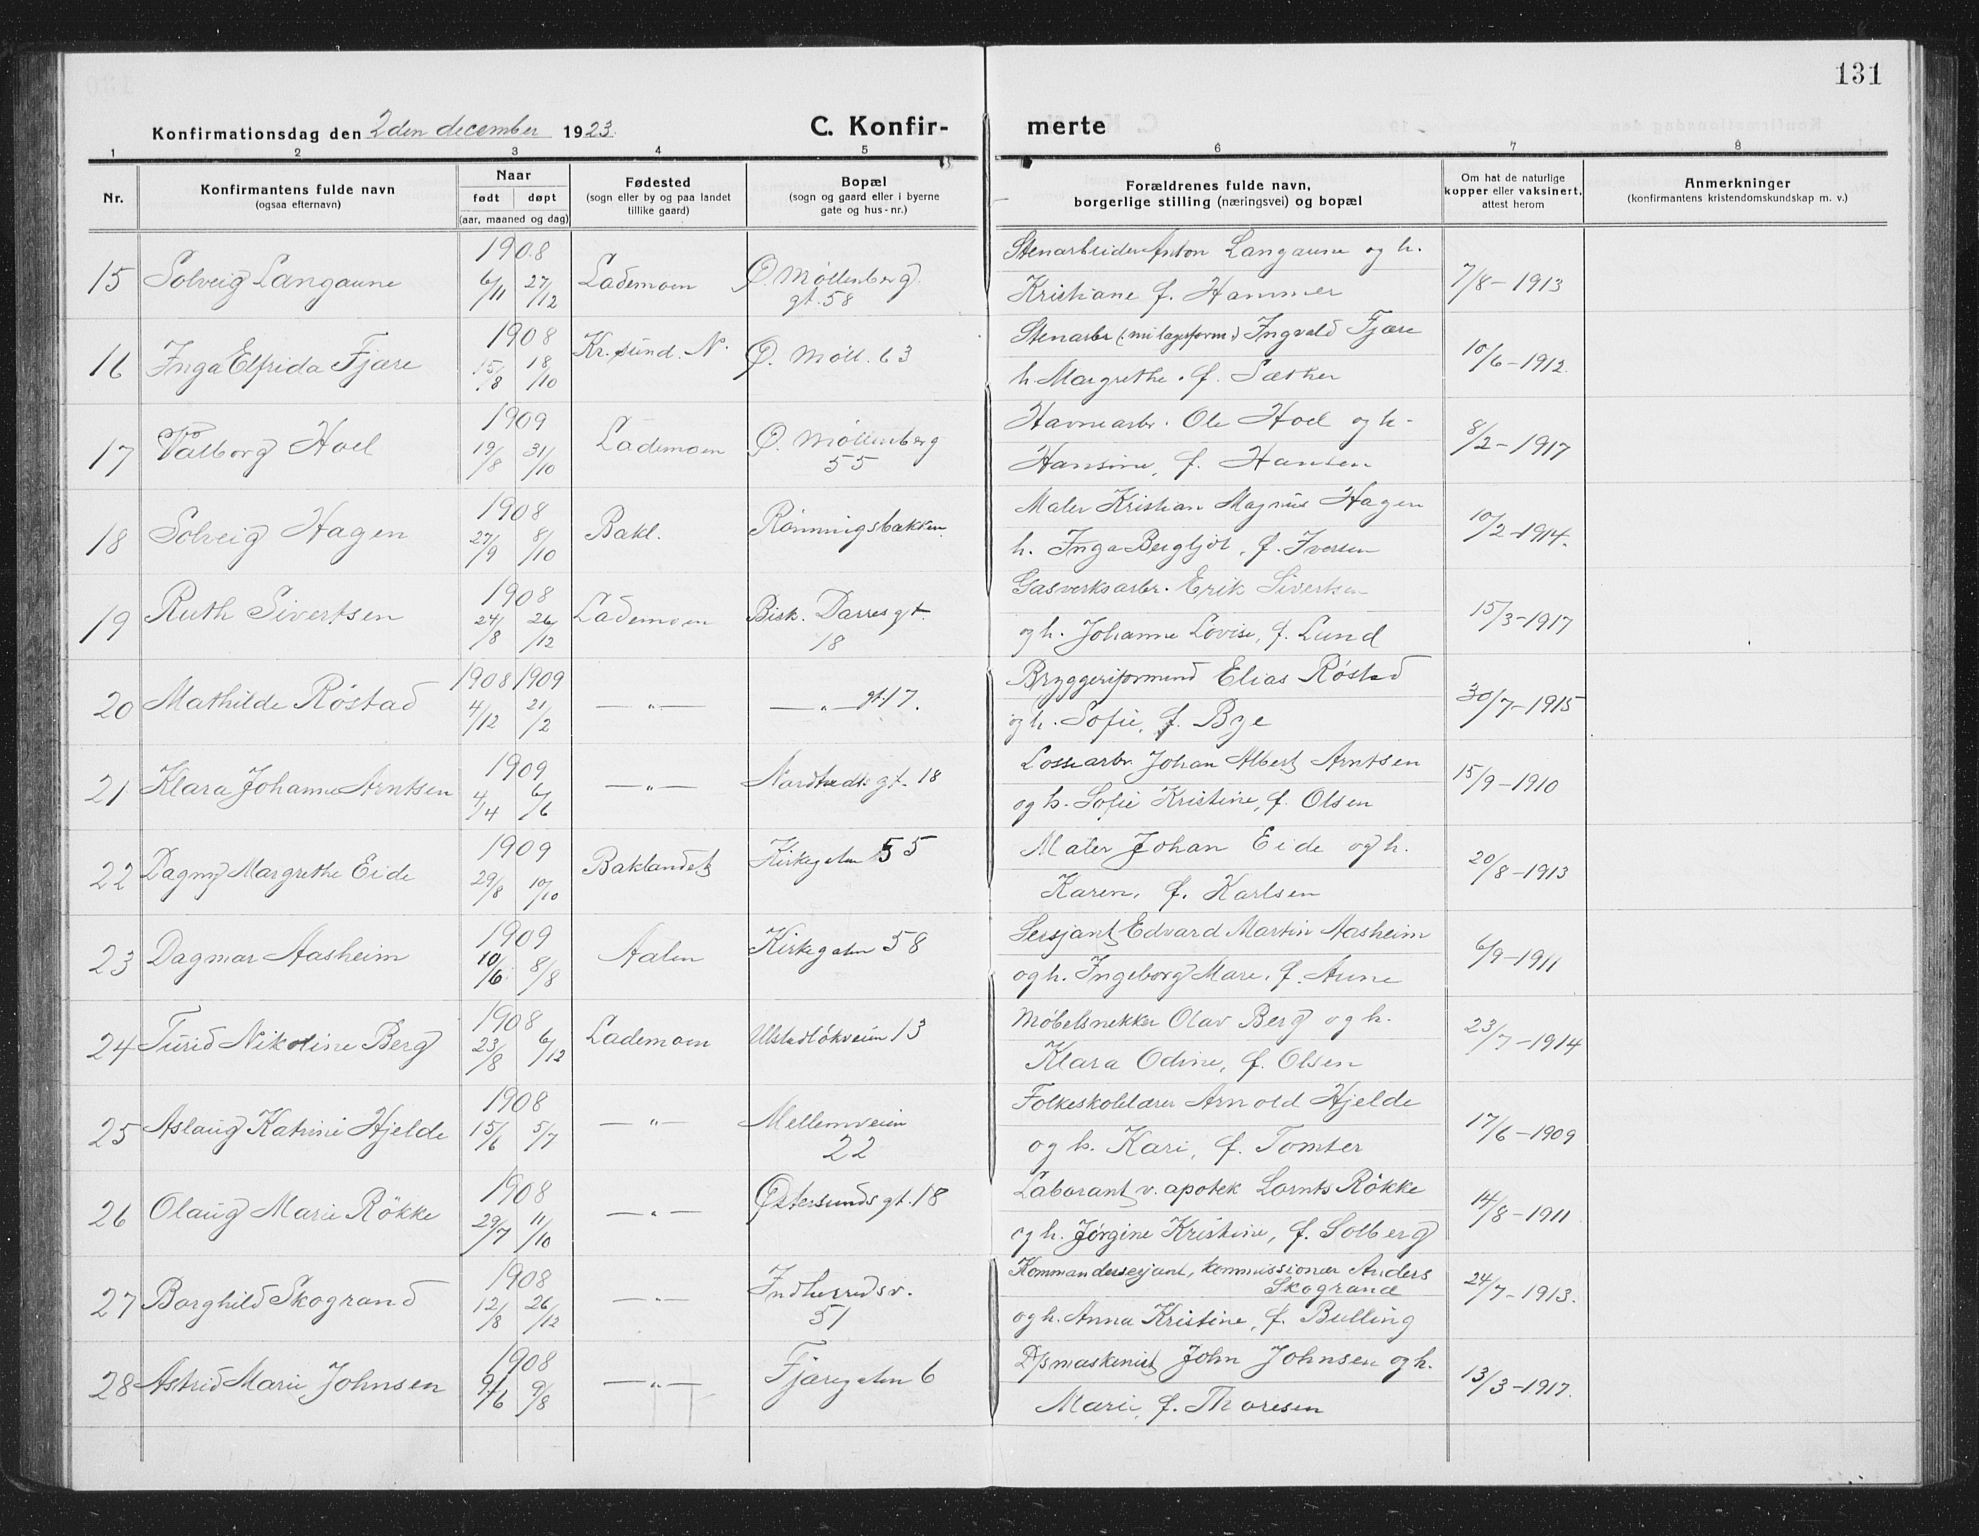 131
Konfirmationsdag den 2den december 1923.
C. Konfir-
merte
1 2 3 4 5 6 7 8
Nr.
Konfirmantens fulde navn
(ogsaa efternavn)
Naar
født døpt
(aar, maaned og dag)
Fødested
(sogn eller by og paa landet
tillike gaard)
Bopæl
(sogn og gaard eller i byerne
gate og hus-nr.)
Forældrenes fulde navn,
borgerlige stilling (næringsvei) og bopæl
Om hat de naturlige
kopper eller vaksinert,
attest herom
Anmerkninger
(konfirmantens kristendomskundskap m. v.)
1908 Stenarbeider Anton Langaune og h.
15 Solveig Langaune 6/11 27/12 Lademoen Ø. Møllenberg 7/8-1913
gt. 58 Kristiane f. Hammer
1908 Stenarbr (nu lagerform.) Ingvald Fjære
16 Inga Elfrida Fjære 15/8 18/10 Kr.sund. N. Ø. Møll. 63 10/6-1912.
h Margrethe. f. Sæther
1909 Havnearbr. Ole Hoel og h.
17 Valborg Hoel 19/8 31/10 Lademoen Ø. Møllenberg 8/2-1917
55 Hansine, f. Hansen
1908 Maler Kristian Magnus Hagen
18 Solveig Hagen 27/9 8/10 Bakl. Rønningsbakken 10/2-1914.
h. Inga Bergljot, f. Iversen
1908 Gasverksarbr. Erik Sivertsen
19 Ruth Sivertsen 24/8 26/12 Lademoen Bisk. Darresgt. 15/3-1917
18 og h. Johanne Lovise, f. Lund
1908 1909 Bryggeriformend Elias Røstad
20 Mathilde Røstad 4/12 21/2 —„— —„— gt 17. 30/7-1915
og h. Sofie, f. Bye
1909 Lossearbr. Johan Albert Arntsen
21 Klara Johanne Arntsen 4/4 6/6 —„— gt. 18 15/9-1910
og h. Sofie Kristine, f. Olsen
1909 Maler Johan Eide og h.
22 Dagny Margrethe Eide 29/8 10/10 Baklandet Kirkegaten 55 20/8-1913
Karen, f. Karlsen
1909 Sersjant Edvard Martin Aasheim
23 Dagmar Aasheim 10/6 8/8 Aalen Kirkegaten 58 6/9-1911
og h. Ingeborg Mare, f. Aune
1908 Møbelsnekker Olav Berg og h.
24 Turid Nikoline Berg 23/8 6/12 Lademoen Ulstadløkveien 13 23/7-1914
Klara Odine, f. Olsen
1908 Folkeskolelærer Arnold Hjelde
25 Aslaug Katrine Hjelde 15/6 5/7 —„— Mellemveien 17/6-1909
22 og h. Kari, f. Tomter
1908 Laborant v. apotek Lornts Røkke
26 Olaug Marie Røkke 29/7 11/10 —„— Østersundsgt. 18 14/8-1911
og h. Jørgine Kristine, f. Solberg
1908 Kommandersersjant, kommissionær Anders
Skogrand
27 Borghild Skogrand 12/8 26/12 —„— Indherredsv. 24/7-1913.
51 og h. Anna Kristine, f. Bulling
1908 D/s maskinist John Johnsen og h.
28 Astrid Marie Johnsen 9/6 9/8 —„— Fjæregaten 6 13/3-1917.
Marie, f. Thoresen